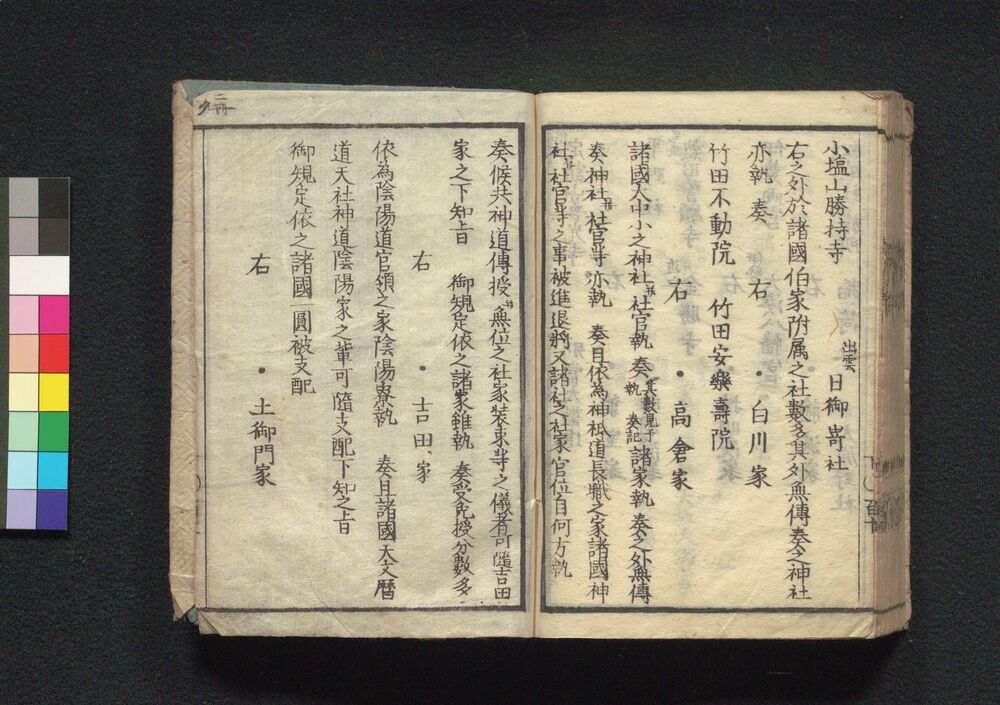 小塩山勝持寺　出雲　日御﨑社
右之外於諸國伯家附属之社數多其外無傳奏之神社
亦執　奏　右　白川家
竹田不動院　竹田安樂壽院
右　高倉家
諸國大中小之神社并社官執　奏其數見于執　奏記諸家執　奏之外無傳
奏神社并社官等亦執　奏且依為神祇道長職之家諸國神
社并社官等之事被進退將又諸社之社家官位自何方執
奏候共神道傳授并無位之社家装束等之儀者可隨吉田
家之下知上旨　御規定依之諸家雖執　奏受免授分數多
右　吉田家
依為陰陽道官領之家陰陽寮執　奏且諸國天文暦
道天社神道陰陽家之輩可隨支配下知之旨
御規定依之諸國一圓被支配
右　土御門家
二冊